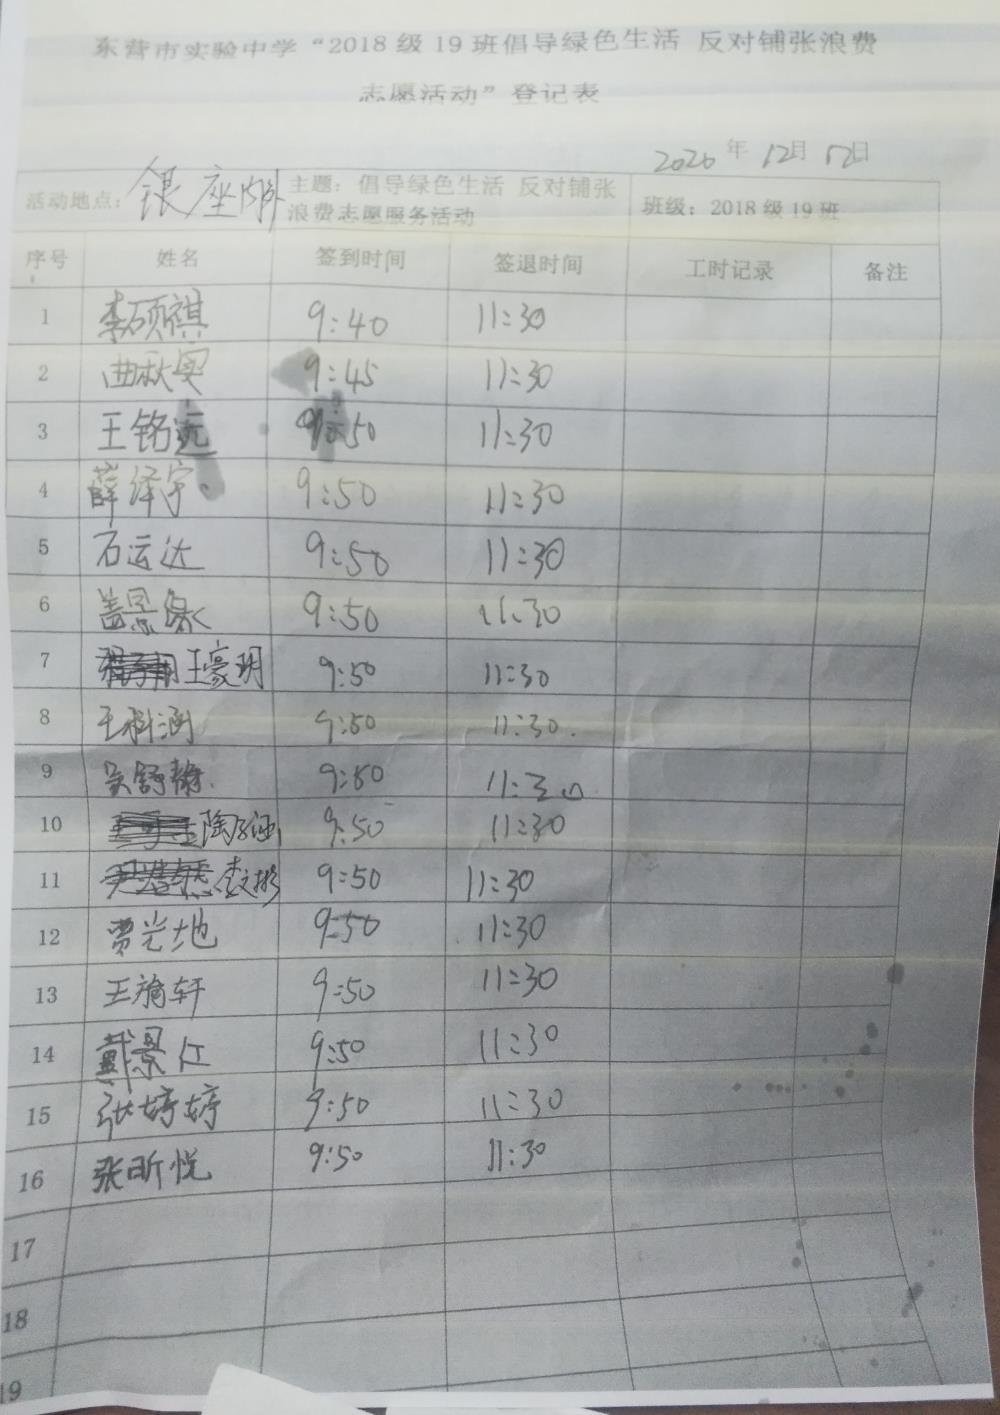 东营市实验中学“2018级19班倡导绿色生活 反对铺张浪费
志愿活动”登记表
2020年12月12日
活动地点：银座内外 主题：倡导绿色生活 反对铺张 班级：2018级19班
浪费志愿服务活动
序号 姓名 签到时间 签退时间 工时记录 备注
1 李硕祺 9:40 11:30
2 曲秋实 9:45 11:30
3 王铭远 9:50 11:30
4 薛泽宇 9:50 11:30
5 石运达 9:50 11:30
6 盖景缘 9:50 11:30
7 王豪玥 9:50 11:30
8 王科涵 9:50 11:30.
9 吴舒静. 9:50 11:30
10 陶子涵 9:50 11:30
11 李文彬 9:50 11:30
12 贾光地 9:50 11:30
13 王 轩 9:50 11:30
14 戴景江 9:50 11:30
15 张婷婷 9:50 11:30
16 张昕悦 9:50 11:30
17
18
19